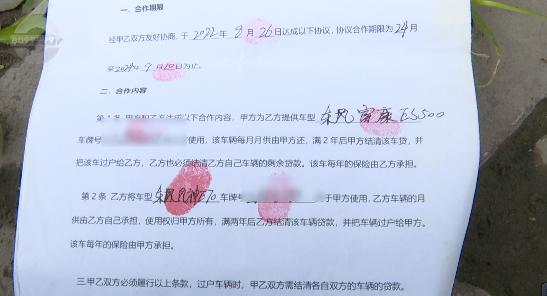 一、合作期限
经甲乙双方友好协商，于2022年8月26日达成以下协议，协议合作期限为24月
至2024年9月10日为止。
二、合作内容
第1条 甲方和乙方达成以下合作内容，甲方为乙方提供车型东风富康ES500
车牌号 使用，该车辆每月月供由甲方还，满2年后甲方结清该车贷，并
把该车过户给乙方，乙方也必须结清乙方自己车辆的剩余贷款。该车每年的保险由乙方承担。
第2条 乙方将车型东风风神E70车牌号 于甲方使用，乙方车辆的月
供由乙方自己承担，使用权归甲方所有，满两年后乙方结清该车辆贷款，并把车辆过户给甲方。
该车每年的保险由甲方承担。
三.甲乙双方必须履行以上条款，过户车辆时，甲乙双方需结清各自双方的车辆的贷款。